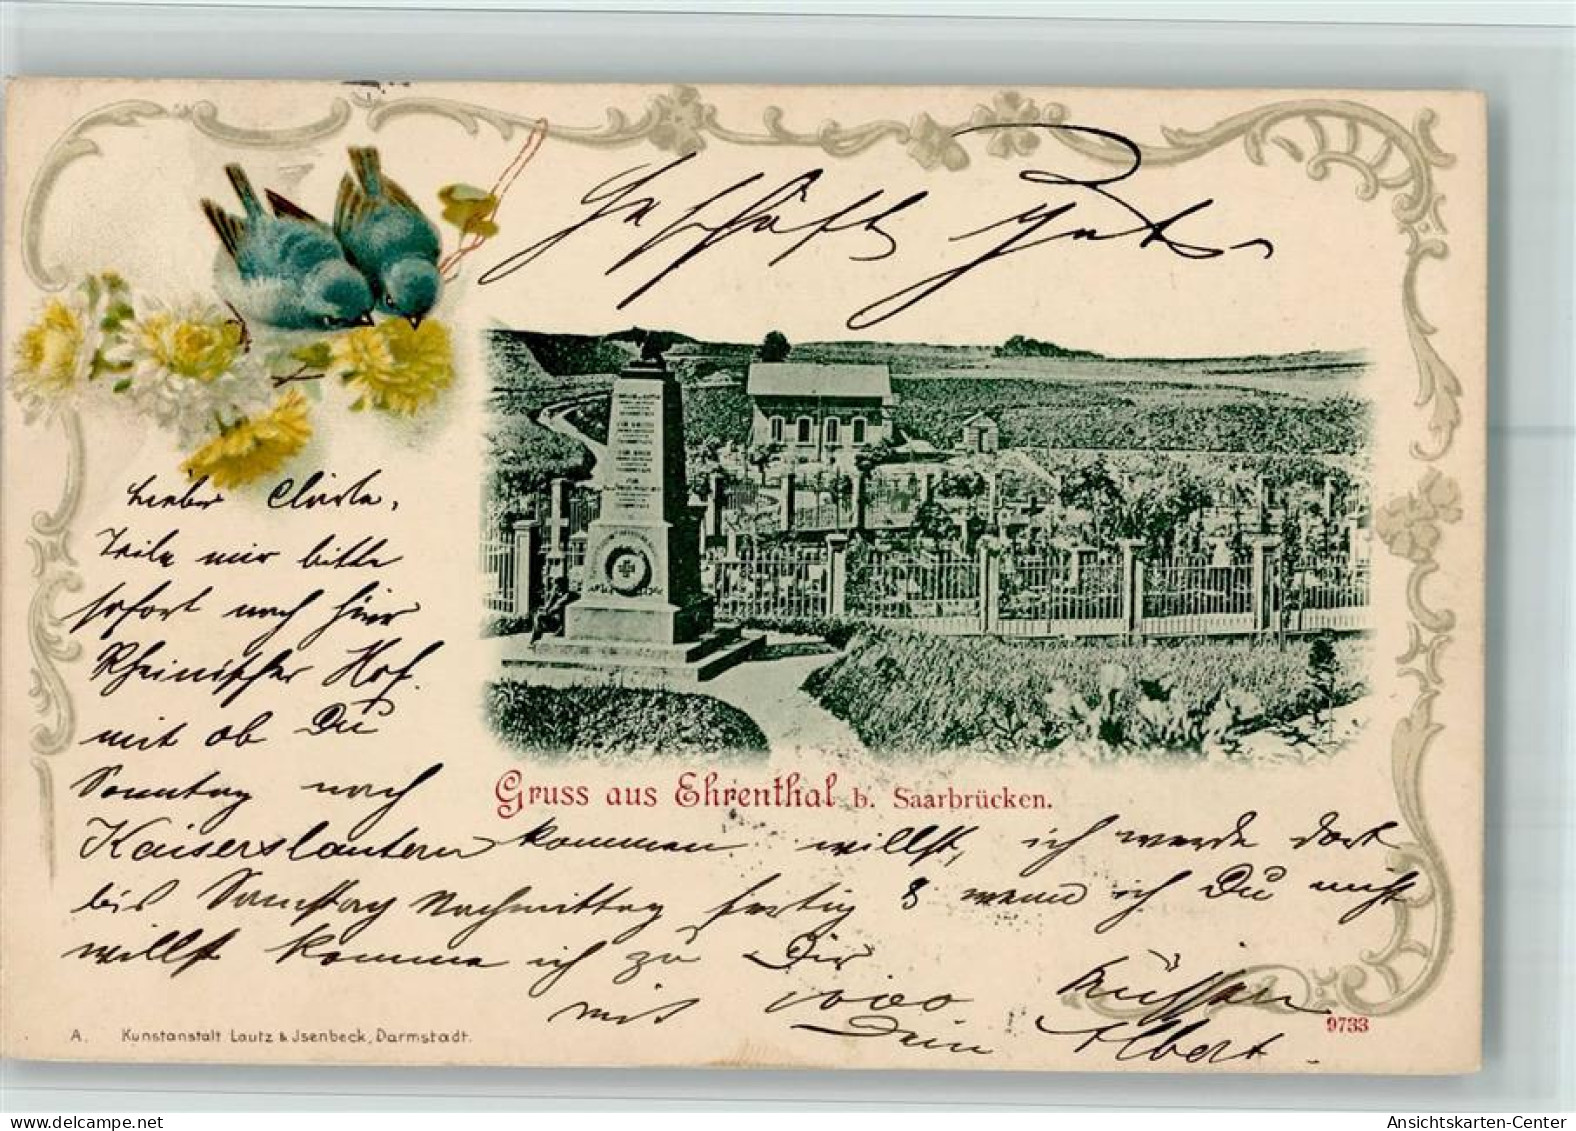 Geschäft Gut
Lieber Cläerle,
Teile mir bitte
sofort nach hier
Rheinischer Hof.
mit ob Du
Sonntag nach
Gruss aus Ehrenthal b. Saarbrücken.
Kaiserslautern kommen willst, ich werde dort
bis Samstag Nachmittag fertig & wenn ich Du nicht
willst komme ich zu Dir
mit 1000 Küssen
Dein Albert.
9733
A. Kunstanstalt Lautz & Jsenbeck, Darmstadt.
Ansichtskarten-Center
delcampe.net